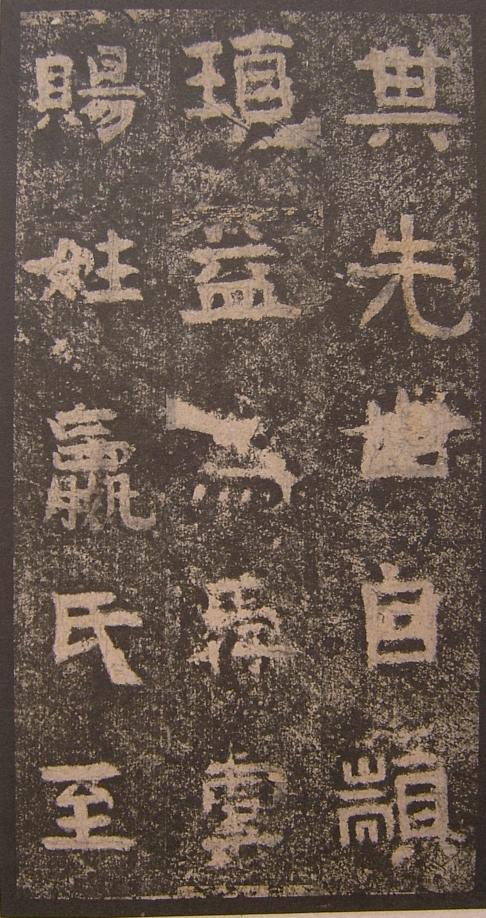 其先世自顓
頊益爲舜掌
賜姓嬴氏至